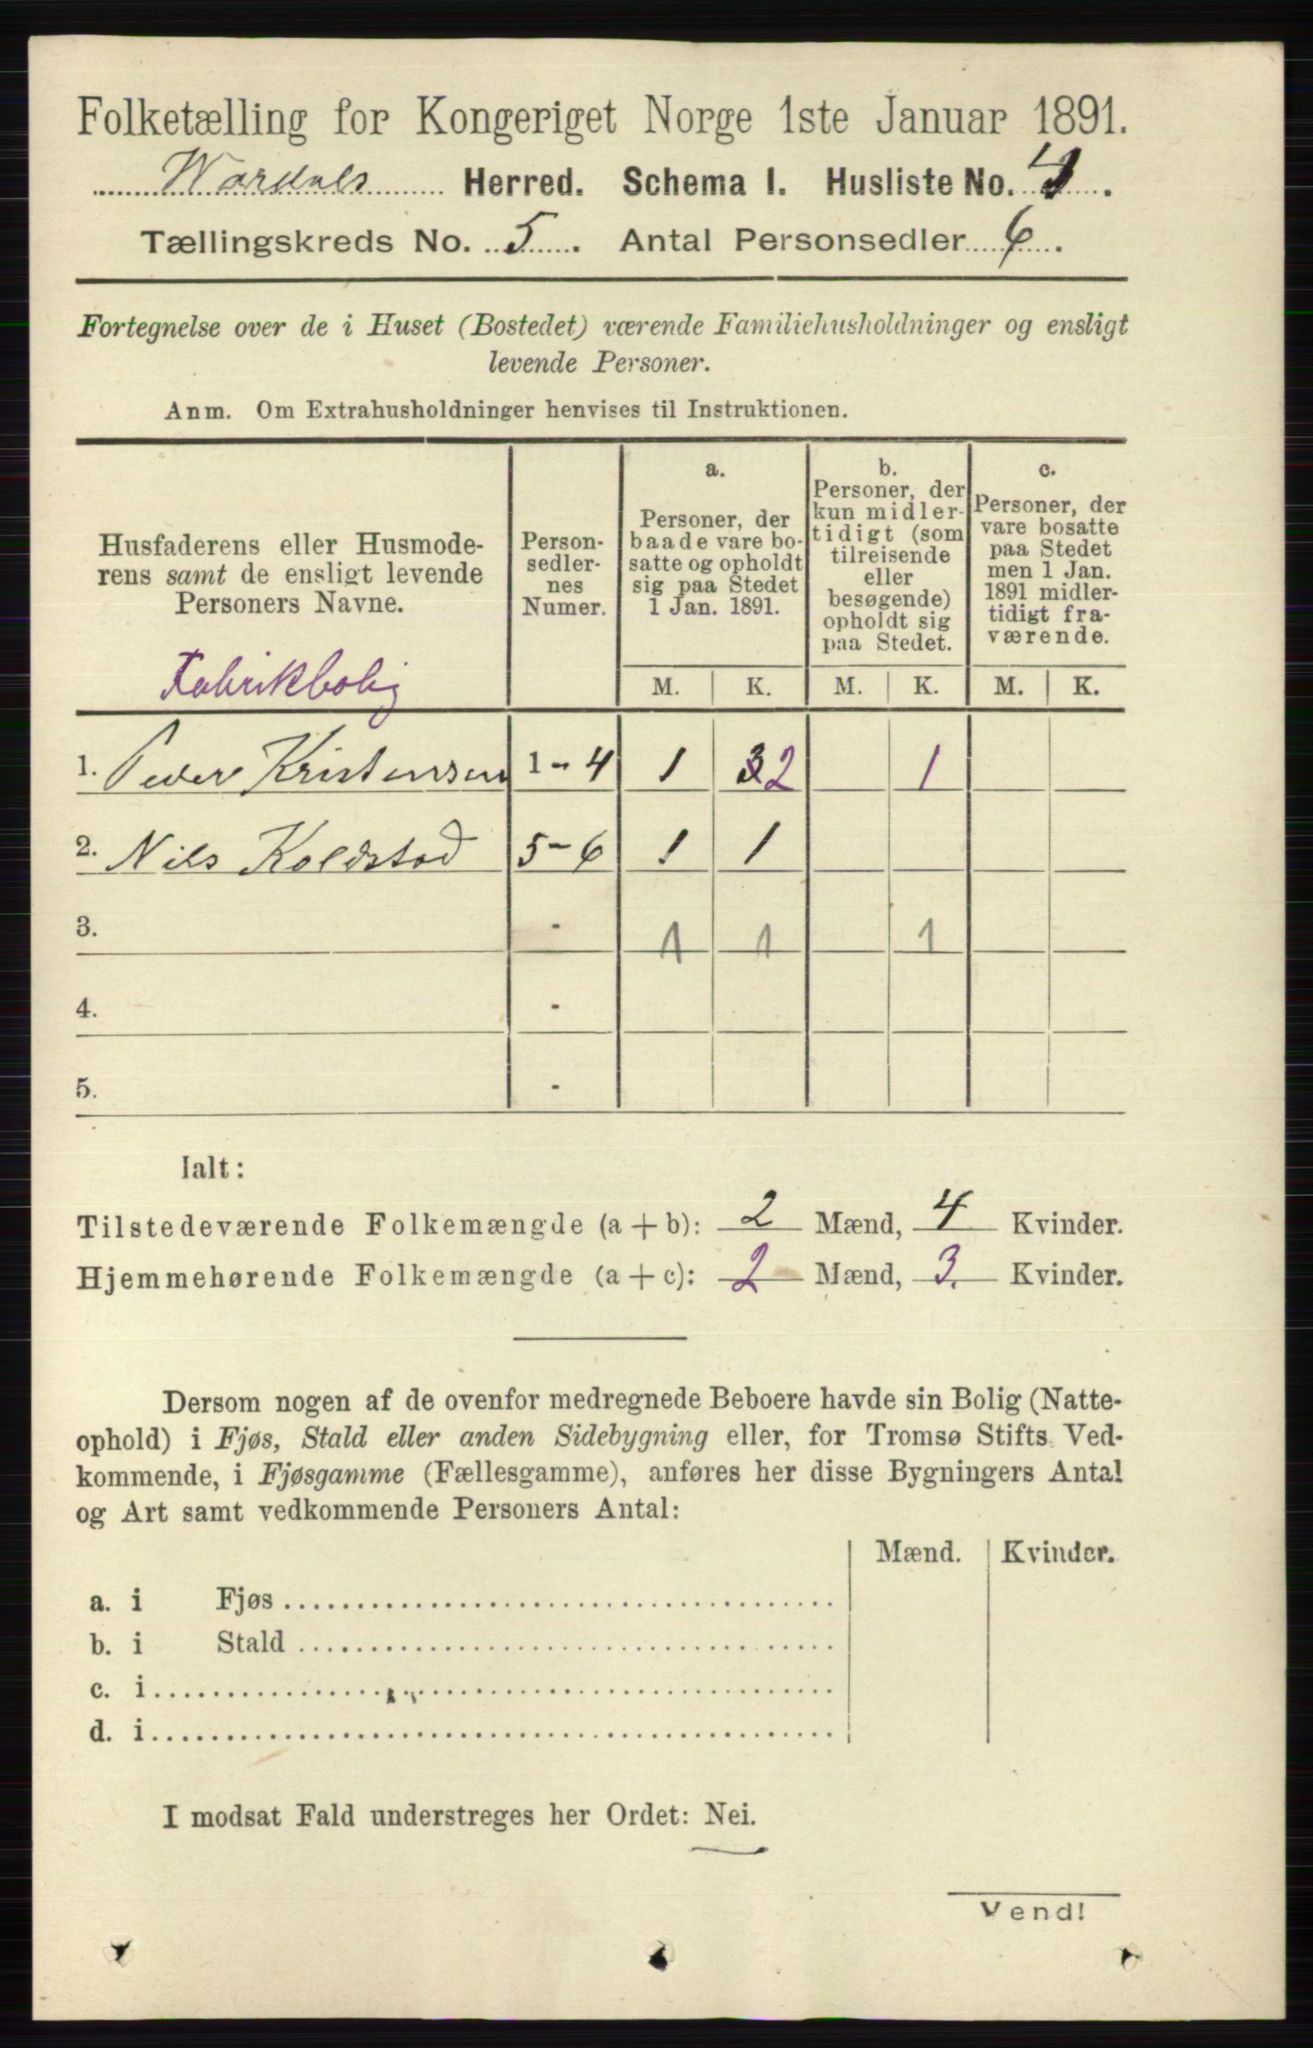 Folketælling for Kongeriget Norge 1ste Januar 1891.
Wardals Herred. Schema I. Husliste No. 4.
Tællingskreds No. 5. Antal Personsedler 6.
Fortegnelse over de i Huset (Bostedet) værende Familiehusholdninger og ensligt
levende Personer.
Anm. Om Extrahusholdninger henvises til Instruktionen.
Husfaderens eller Husmode-
rens samt de ensligt levende
Personers Navne.
Fabrikbolig
Person-
sedler-
nes
Numer.
a.
Personer, der
baade vare bo-
satte og opholdt
sig paa Stedet
1 Jan. 1891.
M. K.
b.
Personer, der
kun midler-
tidigt (som
tilreisende
eller
besøgende)
opholdt sig
paa Stedet.
M. K.
c.
Personer, der
vare bosatte
paa Stedet
men 1 Jan.
1891 midler-
tidigt fra-
værende.
M. K.
1. Peder Kristensen 1-4 1 32 1
2. Nils Koldstad 5-6 1 1
3. - 1 1 1
4. -
5. -
Ialt:
Tilstedeværende Folkemængde (a + b): 2 Mænd, 4 Kvinder.
Hjemmehørende Folkemængde (a + c): 2 Mænd, 3. Kvinder.
Dersom nogen af de ovenfor medregnede Beboere havde sin Bolig (Natte-
ophold) i Fjøs, Stald eller anden Sidebygning eller, for Tromsø Stifts Ved-
kommende, i Fjøsgamme (Fællesgamme), anføres her disse Bygningers Antal
og Art samt vedkommende Personers Antal:
Mænd. Kvinder.
a. i Fjøs
b. i Stald
c. i
d. i
I modsat Fald understreges her Ordet: Nei.
Vend!